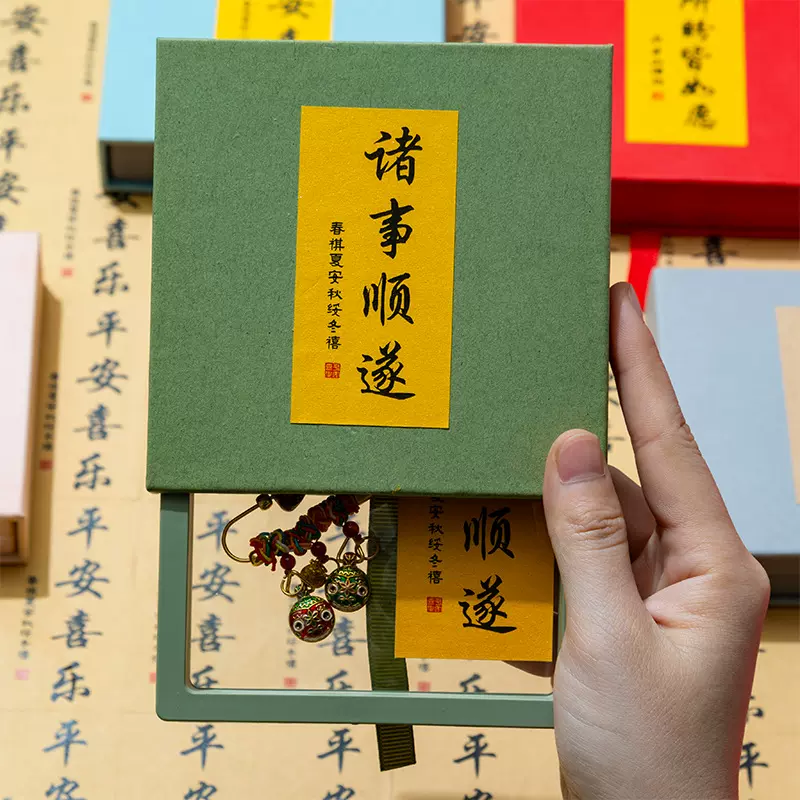 诸事顺遂
春祺夏安秋绥冬禧
顺遂
安秋绥冬禧
安喜
所盼皆如愿
安喜乐平安
喜乐平安喜乐平安喜乐平安
平安喜乐平安
喜乐平安
乐平